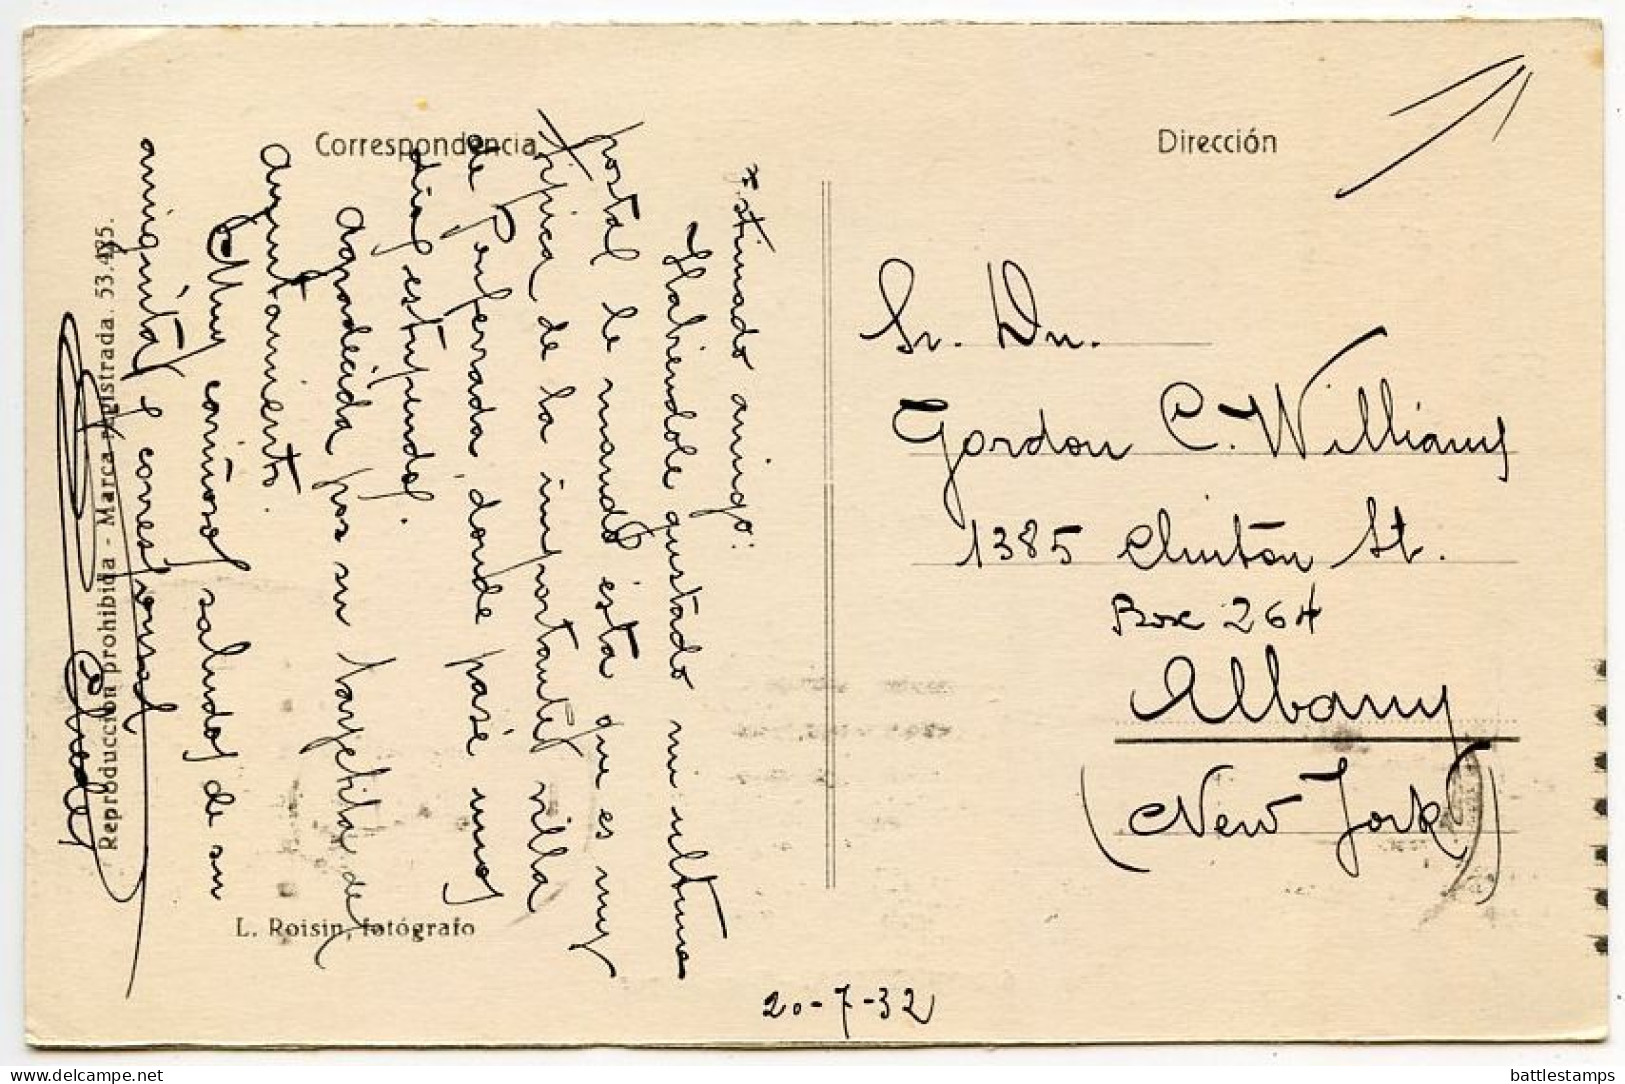 Correspondencia
Dirección
Estimado amigo:
Habiendole gustado mi ultima
postal le mando esta que es muy
típica de la importante villa
de Ponferrada donde pasé unos
días estupendos.
Agradecida por su tarjetita del
Ayuntamiento.
Muy cariñosos saludos de su
amiguita y corresponsal
Reproducción prohibida - Marca registrada. 53.485.
L. Roisin, fotógrafo
Sr. Dn.
Gordon C. Williams
1385 Clinton St.
Box 264
Albany
(New York)
20-7-32
delcampe.net
battlestamps